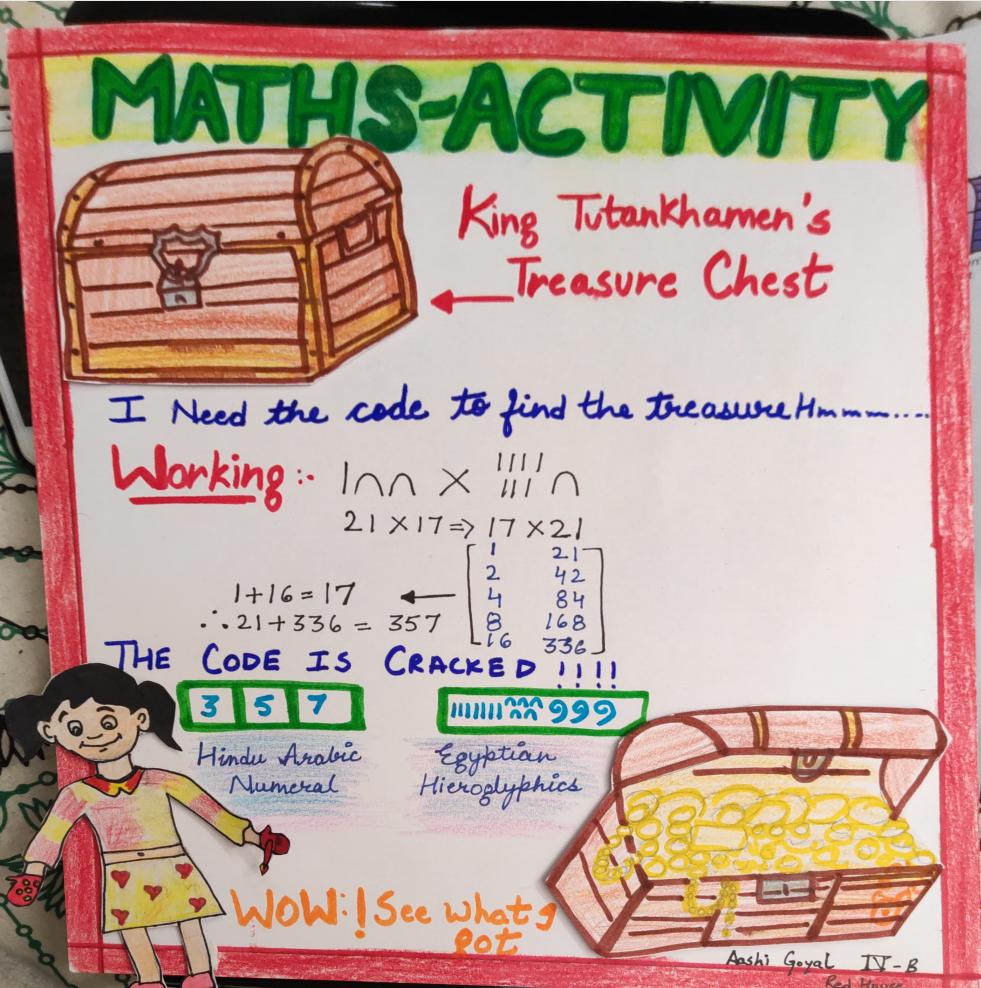 MATHS-ACTIVITY
King Tutankhamen's
Treasure Chest
I Need the code to find the treasure Hmmm....
Working :- I∩∩ × IIII III ∩
21 × 17 => 17 × 21
1 21
2 42
4 84
8 168
16 336
1+16 = 17
∴ 21+336 = 357
THE CODE IS CRACKED !!!!
3 5 7
IIIIIII∩∩∩∩∩999
Hindu Arabic
Numeral
Egyptian
Hieroglyphics
WOW:! See what I
got
Aashi Goyal IV-B
Red House